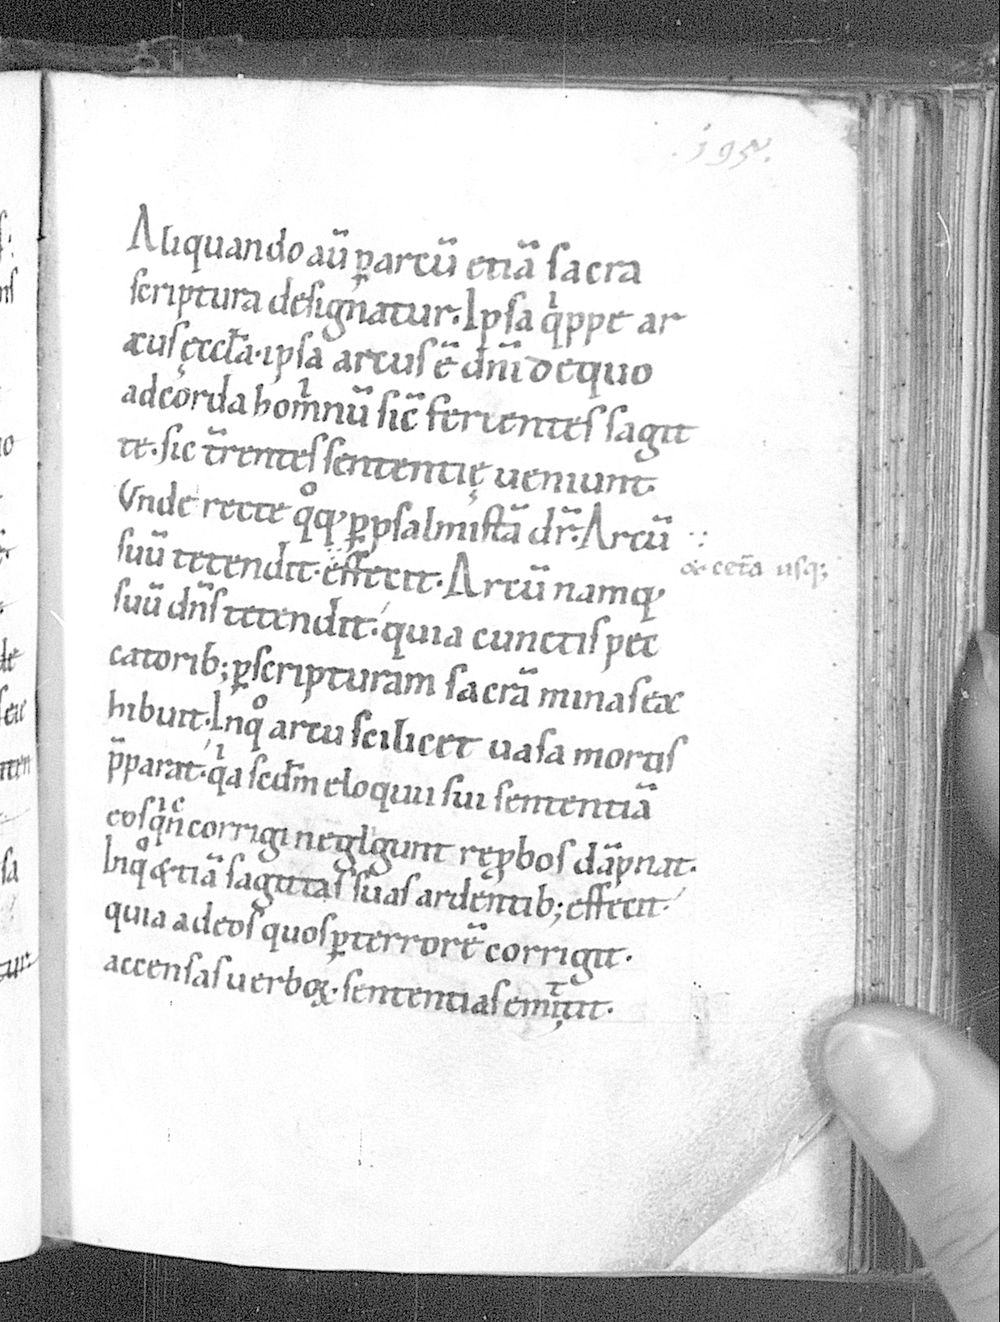 .195.
Aliquando aū ꝑ arcū etiā sacra
scriptura designat᷑ur. Ipsa qͥppe ar
cus ęccl̄a. ipsa arcus ē dn̄i de quo
ad corda homͥnū sic̄ ferientes sagit
te. sic t̄rentes sententię ueniunt.
Vnde recte qͦq; ꝑ psalmistā dr̄. Arcū
suū tetendit. &̄ cet̄a usq;
effecit. Arcū namq;
suū dn̄s tetendit. quia cunctis pec
catorib; ꝑ scripturam sacrā minas ex
hibuit. In qͦ arcu scilicet uasa mortis
p̄parat. qͥa scdm̄ eloquii sui sententiā
eos qͥ nͨ corrigi neglͥgunt reꝓbos dāpnat.
In qͦ &iā sagittas suas ardentib; effecit.
quia ad eos quos ꝑ terrorē corrigit.
accensas uerboꝝ. sententias emittit.